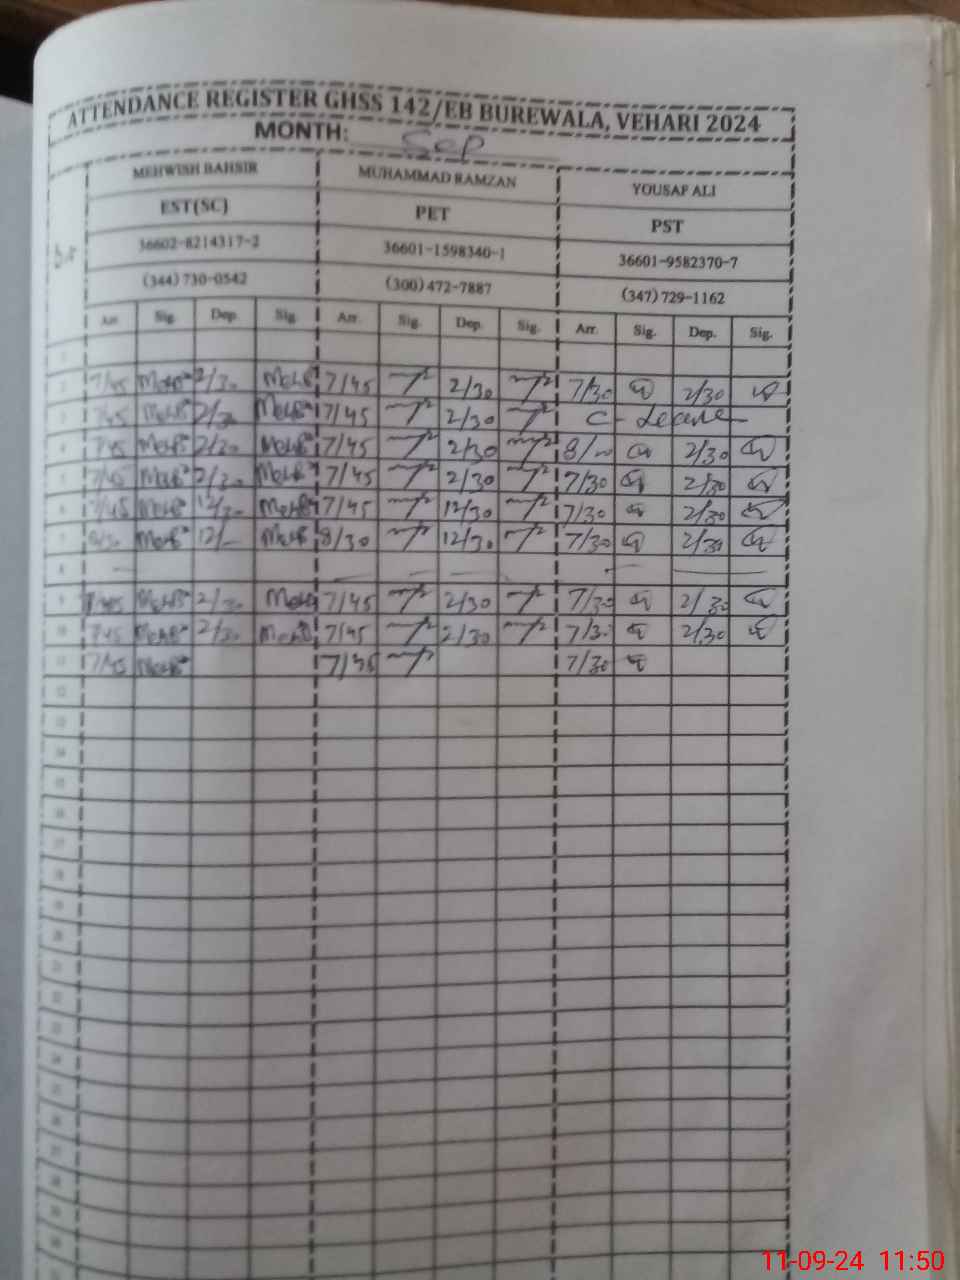 ATTENDANCE REGISTER GHSS 142/EB BUREWALA, VEHARI 2024
MONTH: Sep
MEHWISH BAHSIR MUHAMMAD RAMZAN YOUSAF ALI
EST(SC) PET PST
36602-8214317-2 36601-1598340-1 36601-9582370-7
(344) 730-0542 (300) 472-7887 (347) 729-1162
Arr. Sig. Dep. Sig. Arr. Sig. Dep. Sig. Arr. Sig. Dep. Sig.
1
2 7/45 2/30 7/45 2/30 7/30 2/30
3 7/45 2/30 7/45 2/30 C-Leave
4 7/45 2/30 7/45 2/30 8/- 2/30
5 7/45 2/30 7/45 2/30 7/30 2/30
6 7/45 12/30 7/45 12/30 7/30 2/30
7 8/30 12/- 8/30 12/30 7/30 2/30
8
9 7/45 2/30 7/45 2/30 7/30 2/30
10 7/45 2/30 7/45 2/30 7/30 2/30
11 7/45 7/45 7/30
12
13
14
15
16
17
18
19
20
21
22
23
24
25
26
27
28
29
30
11-09-24 11:50